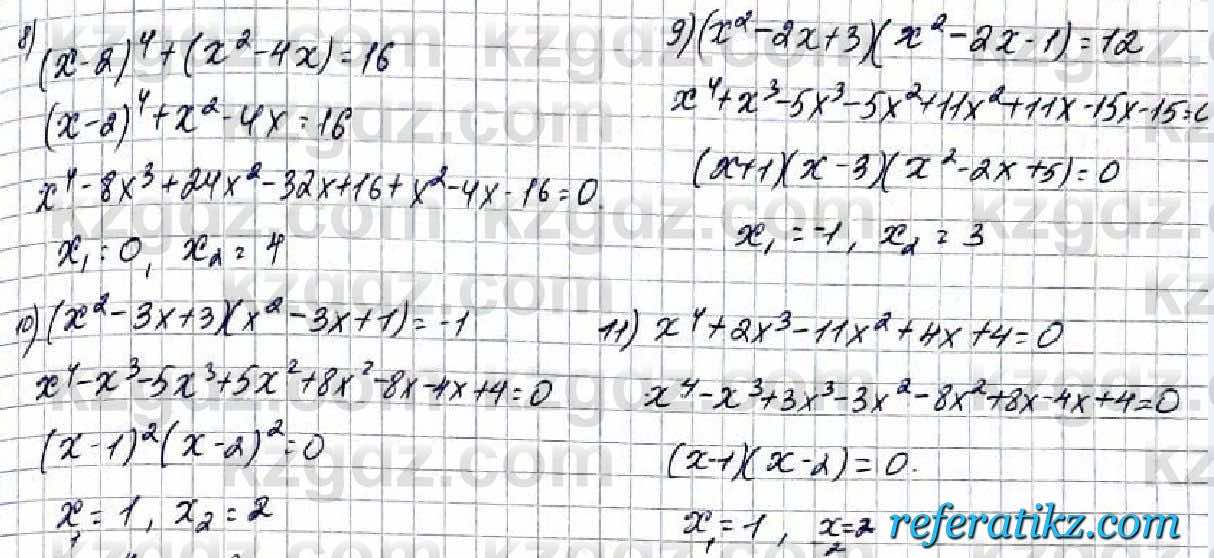 8) (x-2)⁴+(x²-4x)=16
(x-2)⁴+x²-4x=16
x⁴-8x³+24x²-32x+16+x²-4x-16=0.
x₁=0, x₂=4
9) (x²-2x+3)(x²-2x-1)=12
x⁴+x³-5x³-5x²+11x²+11x-15x-15=0
(x+1)(x-3)(x²-2x+5)=0
x₁=-1, x₂=3
10) (x²-3x+3)(x²-3x+1)=-1
x⁴-x³-5x³+5x²+8x²-8x-4x+4=0
(x-1)²(x-2)²=0
x₁=1, x₂=2
11) x⁴+2x³-11x²+4x+4=0
x⁴-x³+3x³-3x²-8x²+8x-4x+4=0
(x-1)(x-2)=0.
x₁=1, x₂=2
referatikz.com
kzgdz.com